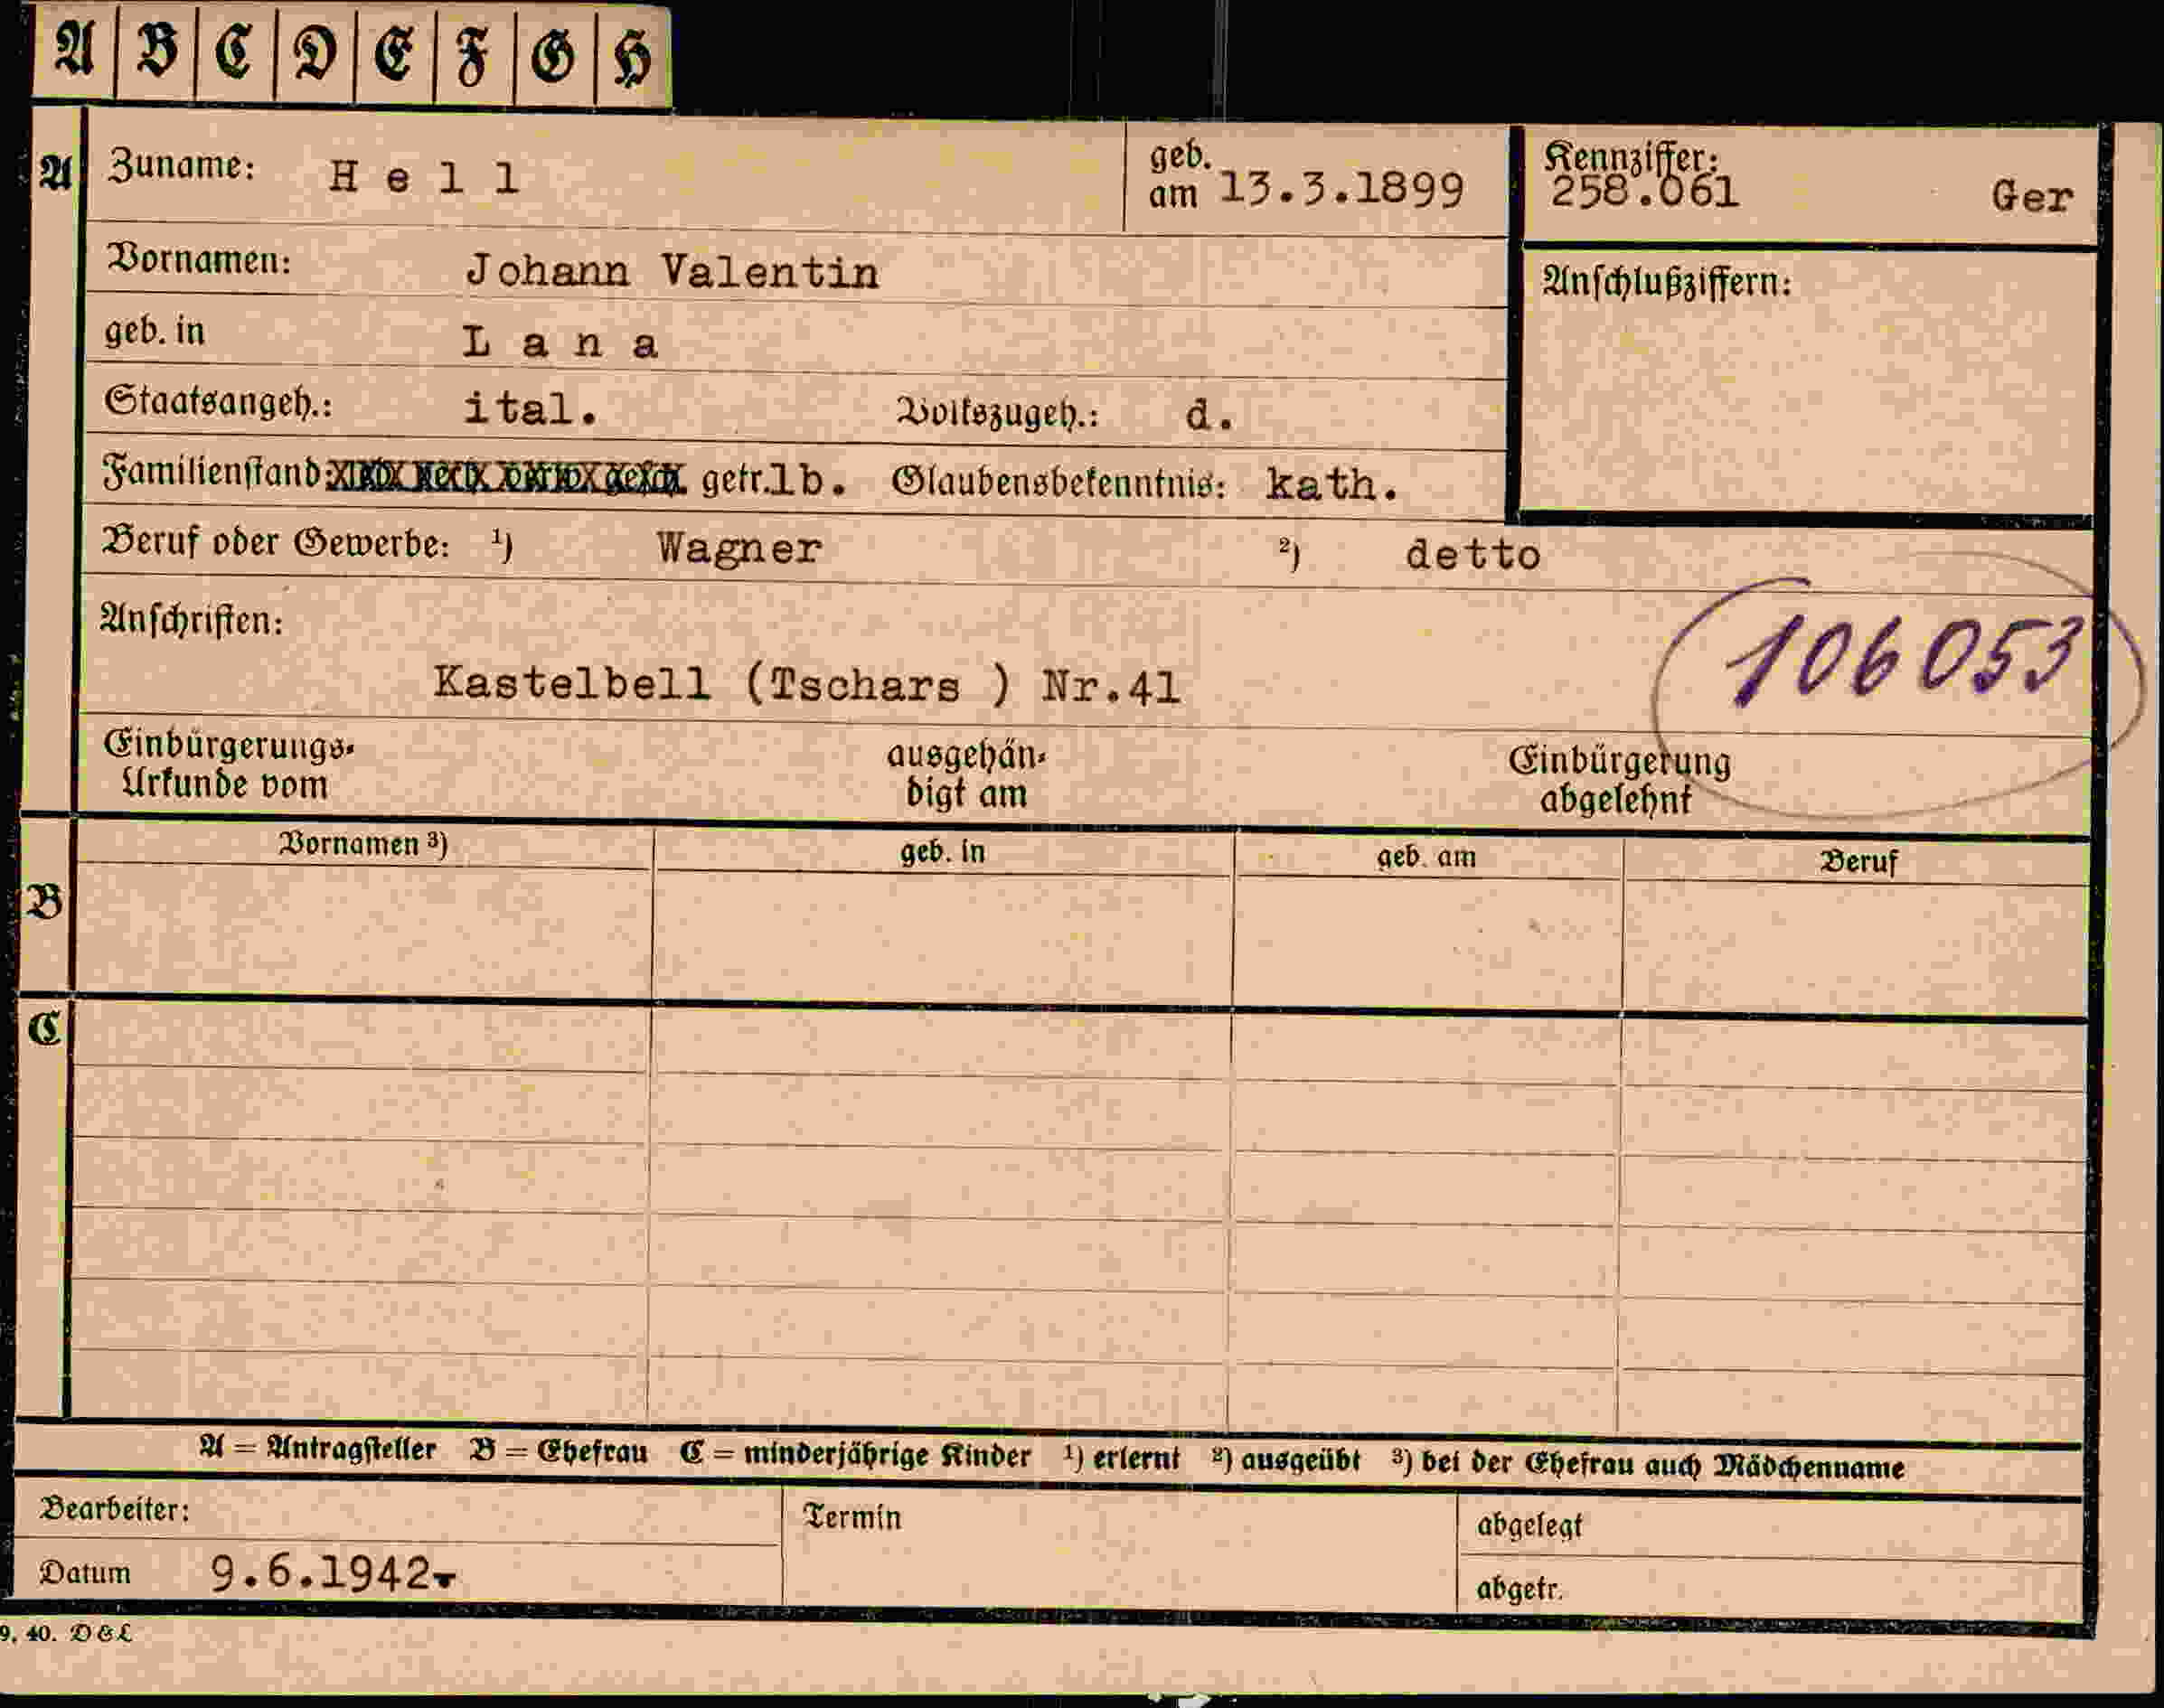 A B C D E F G H
A Zuname: Hell geb. am 13.3.1899 Kennziffer: 258.061 Ger
Vornamen: Johann Valentin Anschlußziffern:
geb. in Lana
Staatsangeh.: ital. Volkszugeh.: d.
Familienstand: getr.lb. Glaubensbekenntnis: kath.
Beruf oder Gewerbe: 1) Wagner 2) detto
Anschriften:
106053
Kastelbell (Tschars ) Nr.41
Einbürgerungs- ausgehän- Einbürgerung
Urkunde vom digt am abgelehnt
Vornamen 3) geb. in geb. am Beruf
B
C
A = Antragsteller B = Ehefrau C = minderjährige Kinder 1) erlernt 2) ausgeübt 3) bei der Ehefrau auch Mädchenname
Bearbeiter: Termin abgelegt
Datum 9.6.1942- abgetr.
9. 40. D&L